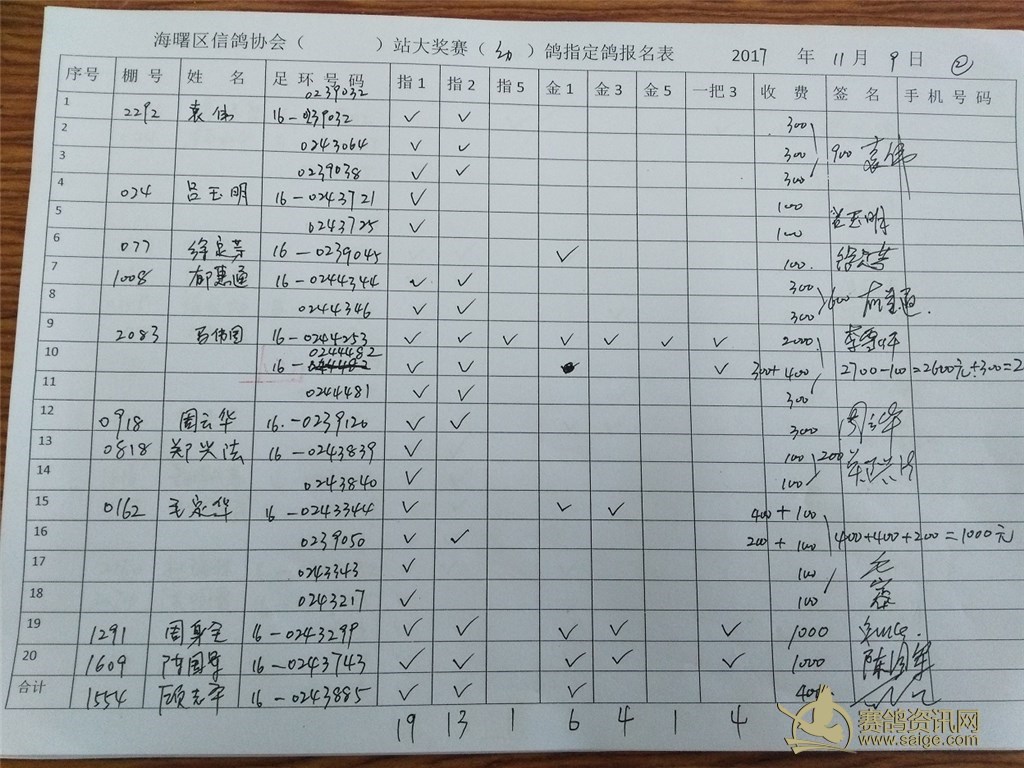 海曙区信鸽协会（ ）站大奖赛（幼）鸽指定鸽报名表 2017 年 11 月 9 日 ②
序号 棚号 姓名 足环号码 指1 指2 指5 金1 金3 金5 一把3 收费 签名 手机号码
0239032
1 2292 袁伟 16-039032 ✓ ✓ 300
2 0243064 ✓ ✓ 300 900 袁伟
3 0239038 ✓ ✓ 300
4 024 吕玉明 16-0243721 ✓ 100
5 0243725 ✓ 100 吕玉明
6 077 徐定芳 16-0239045 ✓ 100.
7 1008 郁惠通 16-0244344 ✓ ✓ 300
8 0244346 ✓ ✓ 300 600
9 2083 16-0244253 ✓ ✓ ✓ ✓ ✓ ✓ ✓ 2000
0244482
10 16- ✓ ✓ ✓ 300+400 2700-100=2600元+300=2
11 0244481 ✓ ✓ 300
12 0918 周云华 16.-0239120 ✓ ✓ 300
13 0818 郑兴法 16-0243839 ✓ 100 200
14 0243840 ✓ 100
15 0162 毛家华 16-0243344 ✓ ✓ ✓ 400+100
16 0239050 ✓ ✓ 200+100 400+400+200=1000元
17 0243343 ✓ 100
18 0243217 ✓ 100
19 1291 16-0243299 ✓ ✓ ✓ ✓ ✓ 1000
20 1609 陈国军 16-0243743 ✓ ✓ ✓ ✓ ✓ 1000 陈国军
合计 1554 顾志平 16-0243885 ✓ ✓ ✓ 400
19 13 1 6 4 1 4
赛鸽资讯网
www.saige.com